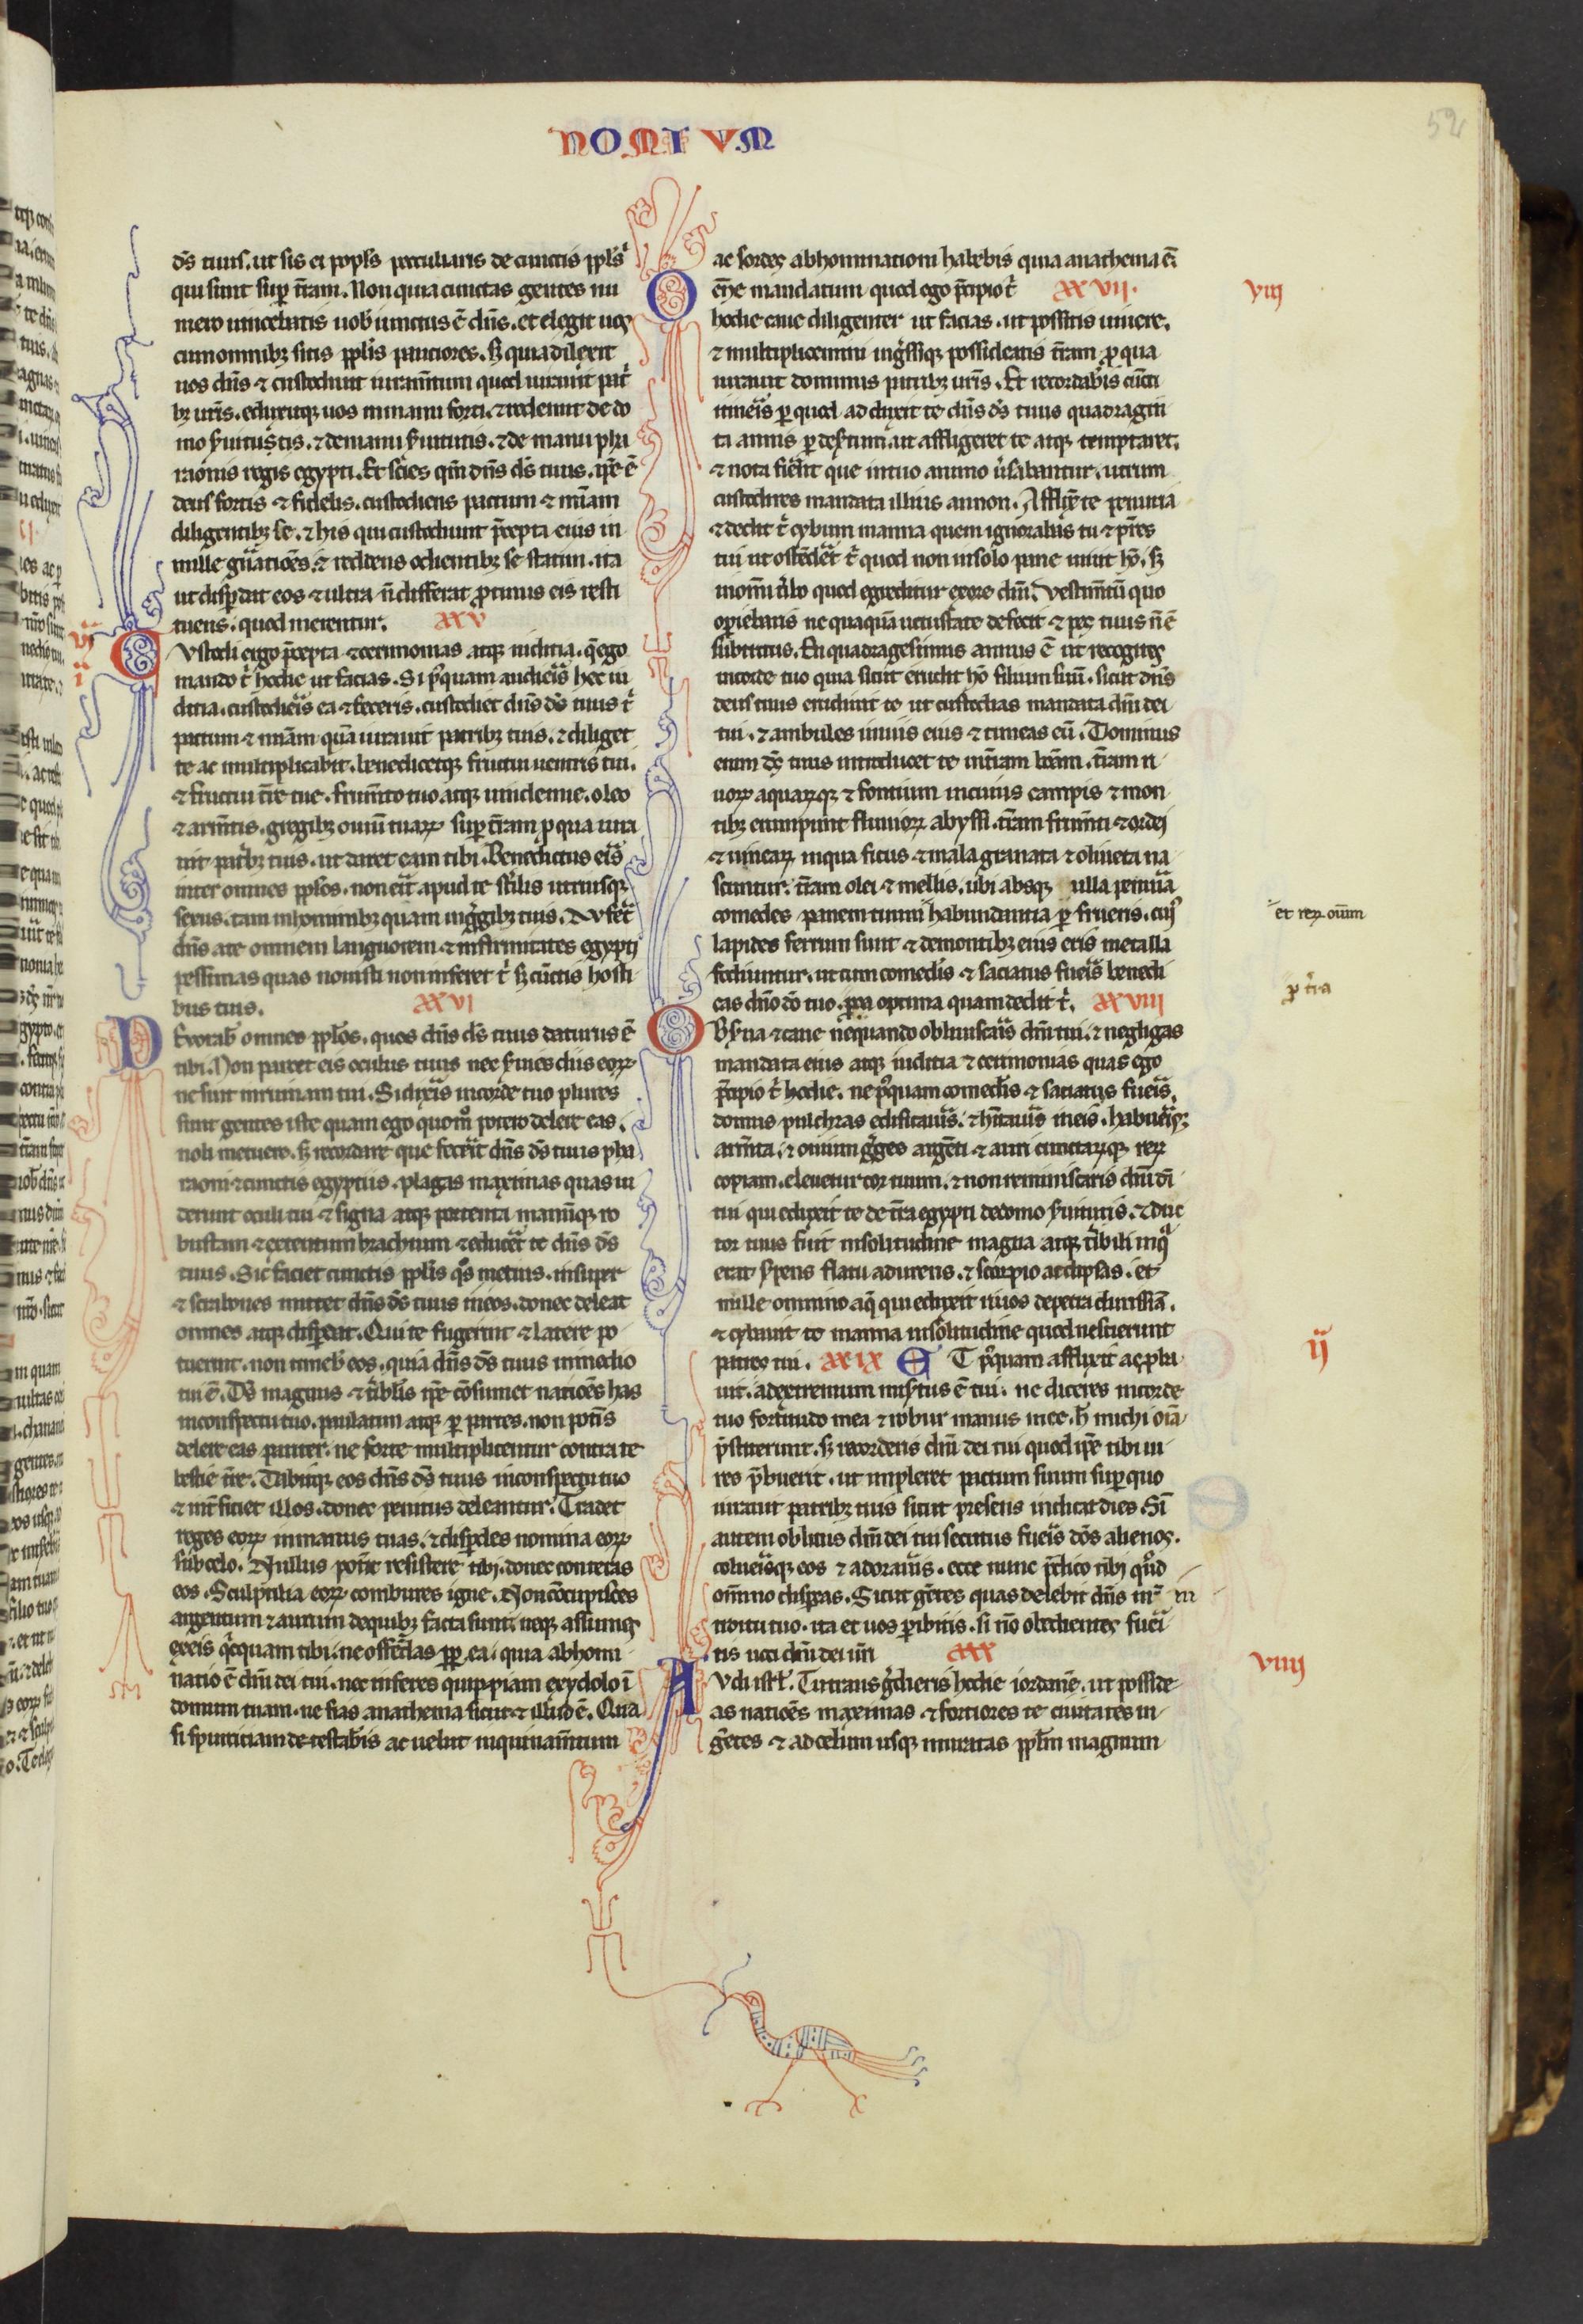 NOMIUM
52
ds tuus. ut sis ei popls peculiaris de cunctis pplis
qui sunt sup tram. Non quia cunctas gentes nu
mero uincebatis uob iunctus e dns. et elegit uos
cum omnibz sitis pplis pauciores. sz quia dilexit
uos dns ⁊ custodiuit iuramtum quod iurauit pat
bz uris. eduxitqz uos in manu forti. ⁊ redemit de do
mo seruitutis. ⁊ de manu seruitutis. ⁊ de manu pha
raonis regis egypti. Et scies qm dns ds tuus. ipe e
deus fortis ⁊ fidelis. custodiens pactum ⁊ miam
diligentibz se. ⁊ his qui custodiunt pcepta eius in
mille gnatioes. ⁊ reddens odientibz se statim. ita
ut disperdat eos ⁊ ultra n differat protinus eis resti
tuens. quod merentur. XXV
Custodi ergo pcepta ⁊ cerimonias atqz iudicia. q ego
mando t hodie ut facias. Si pquam audieis hec iu
dicia. custodieis ea ⁊ feceris. custodiet dns ds tuus t
pactum ⁊ miam qua iurauit patribz tuis. ⁊ diliget
te ac multiplicabit. benedicetqz fructui uentris tui.
⁊ fructui tre tue. frumto tuo. atqz uindemie. oleo
⁊ armtis. gregibz ouiu tuarz sup tram p qua iura
uit patbz tuis. ut daret eam tibi. Benedictus eis
inter omnes pplos. non erit apud te stlis utriusqz
sexus. tam in hominibz quam in ggibz tuis. Auferet
dns a te omnem languorem ⁊ infirmitates egypti
pessimas quas nouisti non inferet t sz cuctis hosti
bus tuis. XXVI
Deuorab omnes pplos. quos dns ds tuus daturus e
tibi. Non parcet eis oculus tuus nec suies diis eorz
ne sint in ruinam tui. Si dixeis in corde tuo plures
sunt gentes iste quam ego quomo potero delere eas.
noli metuere. sz recordare que fecerit dns ds tuus pha
raoni ⁊ cunctis egyptiis. plagas maximas quas ui
derunt oculi tui ⁊ signa atqz portenta manumqz ro
bustam ⁊ extentum brachium ⁊ educeret te dns ds
tuus. Sic faciet cunctis pplis qs metuis. insuper
⁊ scrabones mittet dns ds tuus in eos. donec deleat
omnes atqz disperdat. Qui te fugerint ⁊ latere po
tuerint. non timeb eos. quia dns ds tuus in medio
tui e. Ds magnus ⁊ tiblis ipe cosumet natioes has
in conspectu tuo. paulatim atqz per partes. non potis
delere eas pariter. ne forte multiplicentur contra te
bestie tre. Dabitqz eos dns ds tuus in conspectu tuo
⁊ intficiet illos. donec penitus deleantur. Tradet
reges eorz in manus tuas. ⁊ disperdes nomina eorz
sub celo. Nullus potit resistere tibi. donec conteras
eos. Sculptilia eorz combures igne. Non cocupisces
argentum ⁊ aurum de quibz facta sunt. neqz assumes
ex eis qcquam tibi. ne offendas pp ea. quia abhomi
natio e dni dei tui. nec inferes quippiam ex ydolo i
domum tuam. ne fias anathema sicut ⁊ illud e. Qua
si spurticiam detestabis ac uelut inquinamtum
VII
II
I
ac sordes abhominationi habebis quia anathema e.
Omne mandatum quod ego pcipio t XXVII.
hodie caue diligenter ut facias. ut possitis uiuere.
⁊ multiplicemini ingssiqz possideatis tram p qua
iurauit dominus patribz uris. Et recordabis cucti
itineis p quod adduxit te dns ds tuus quadragin
ta annis p destum. ut affligeret te atqz temptaret.
⁊ nota fierent que in tuo animo uersabantur. utrum
custodires mandata illius an non. Afflixit te penuria
⁊ dedit t cybum manna quem ignorabas tu ⁊ pres
tui ut ostedet t quod non in solo pane uiuit ho. sz
in omi ubo quod egreditur ex ore dni. Vestimtu quo
opiebaris ne quaqua uetustate defecit ⁊ pes tuus n e
subtritus. En quadragesimus annus e ut recogites
in corde tuo quia sicut erudit ho filium suu. sicut dns
deus tuus erudiuit te ut custodias mandata dni dei
tui. ⁊ ambules in uiis eius ⁊ timeas eu. Dominus
enim ds tuus introducet te in tram bonam. tram ri
uorz aquarzqz ⁊ fontium in cuius campis ⁊ mon
tibz erumpunt fluuiorz abyssi. tram frumti ⁊ ordei
⁊ uinearz in qua ficus ⁊ mala granata ⁊ oliueta na
scuntur. tram olei ⁊ mellis. ubi absqz ulla penuria
comedes panem tuum ⁊ habundantia perfrueris. cui
lapides ferrum sunt ⁊ de montibz eius eris metalla
fodiuntur. ut cum comedis ⁊ saciatus fueis benedi
cas dno do tuo. pra optima quam dedit t. XXVIII
Obsua ⁊ caue nequando obliuiscais dni tui. ⁊ negligas
mandata eius atqz iudicia ⁊ cerimonias quas ego
pcipio t hodie. ne pquam comedis ⁊ saciatus fueis.
domus pulchras edificaueis. ⁊ hitaueis in eis. habueisqz
armta. ⁊ ouium gges argeti ⁊ auri cunctarzqz rerz
copiam. eleuetur cor tuum. ⁊ non reminiscaris dni di
tui qui eduxit te de tra egypti de domo seruitutis. ⁊ duc
tor tuus fuit in solitudine magna atqz tibili in q
erat spens flatu adurens. ⁊ scorpio ac dipsas. et
nulle omnino aq qui eduxit riuos de petra durissia.
⁊ cybauit te manna in solitudine quod nescierunt
patres tui. XXIX ET pquam afflixit ac pba
uit. ad extremum misertus e tui. ne diceres in corde
tuo fortitudo mea ⁊ robur manus mee. h michi oia
pstiterunt. sz recorderis dni dei tui quod ipe tibi ui
res pbuerit. ut impleret pactum suum sup quo
iurauit patribz tuis sicut presens indicat dies. Si
autem oblitus dni dei tui secutus fueis dos alienos.
colueisqz eos ⁊ adoraueis. ecce nunc pdico tibi qd
omnino dispeas. Sicut getes quas deleuit dns in
troitu tuo. ita et uos pibitis. si no obedientes fuei
tis uoci dni dei uri XXX
Audi isrl. Tu transgdieris hodie iordane. ut posside
as natioes maximas ⁊ fortiores te ciuitates in
getes ⁊ ad celum usqz muratas pplm magnum
VIII
et rerz ouium
p tra
II
VIIII